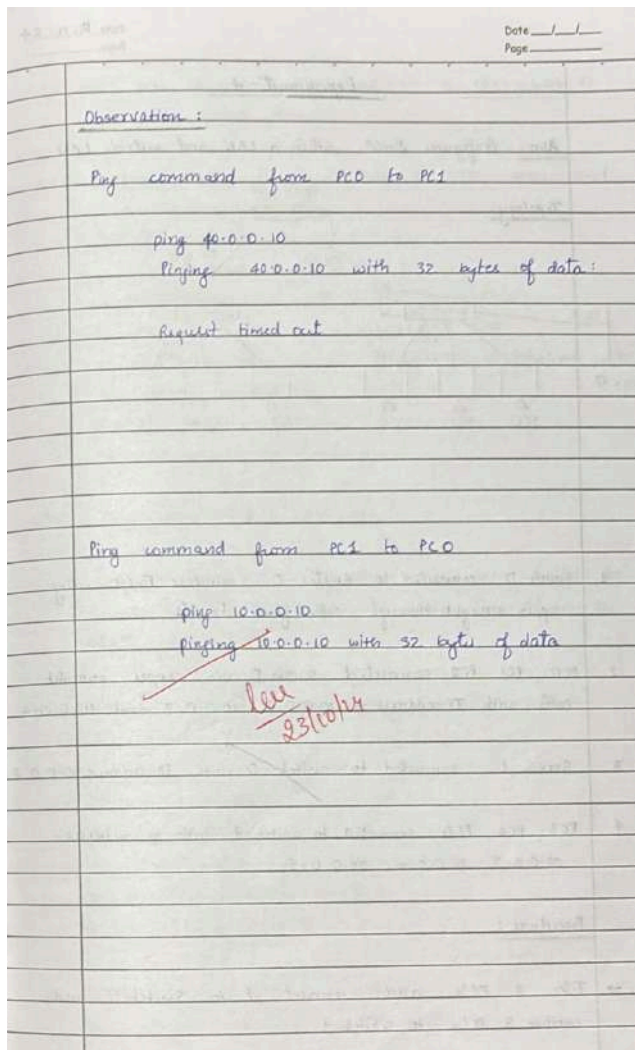 Date __/__/__
Page
Observation :
Ping command from PC0 to PC1
ping 40.0.0.10
Pinging 40.0.0.10 with 32 bytes of data :
Request timed out
Ping command from PC1 to PC0
ping 10.0.0.10
pinging 10.0.0.10 with 32 bytes of data
23/10/24